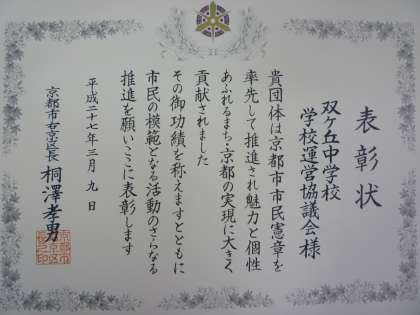 表彰状
双ケ丘中学校
学校運営協議会様
貴団体は京都市市民憲章を
率先して推進され魅力と個性
あふれるまち・京都の実現に大きく
貢献されました
その御功績を称えますとともに
市民の模範となる活動のさらなる
推進を願いここに表彰します
平成二十七年三月九日
京都市右京区長 桐澤孝男